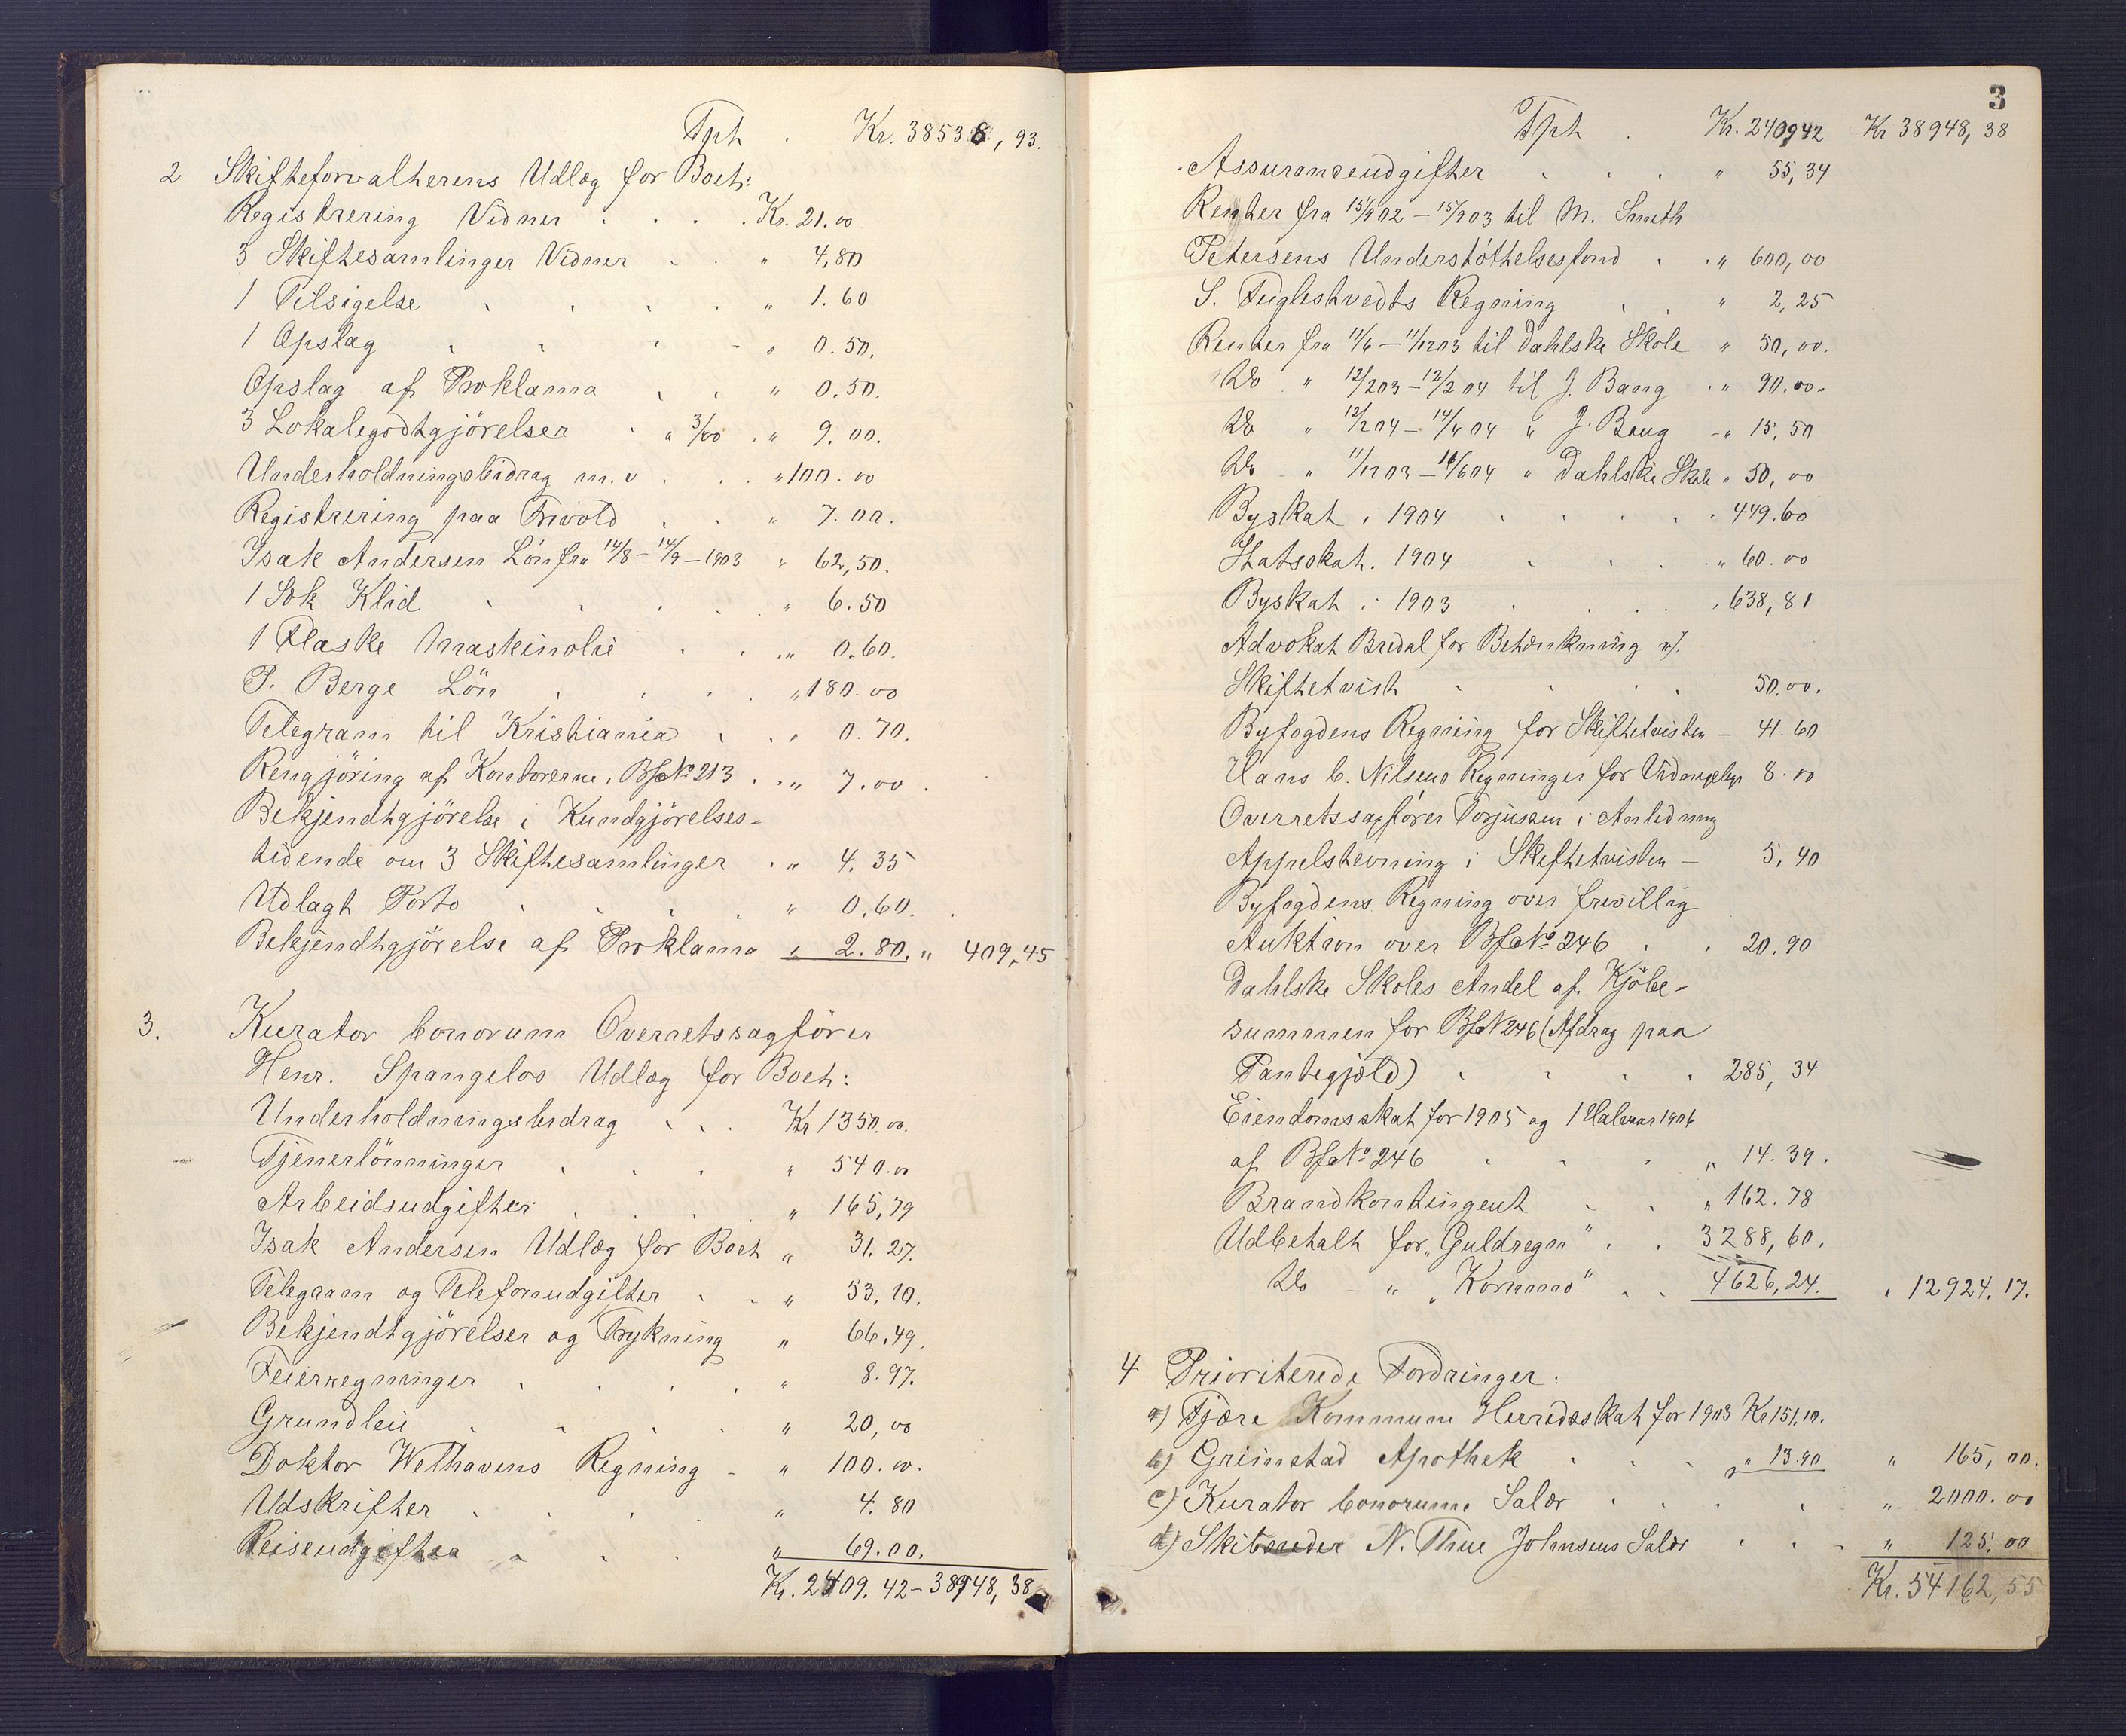 Tpt . Kr. 38538,93.
2 Skifteforvalterens Udlæg for Boet:
Registrering Vidner . . . . Kr. 21.00
3 Skiftesamlinger Vidner . . " 4,80
1 Tilsigelse . . . . " 1.60
1 Opslag . . . . " 0.50.
Opslag af Proklama . . " 0.50.
3 Lokalegodtgjörelser . a 3/00 . " 9.00.
Underholdningsbidrag m.v . . . " 100.00
Registrering paa Frivold . . " 7.00.
Isak Andersen Lön fra 14/8 - 14/9 - 1903 " 62,50.
1 Sæk Klid . . . . " 6.50
1 Flaske Maskinolie . . . " 0.60.
P. Berge Lön . . . . " 180.00
Telegram til Kristiania . . " 0.70.
Rengjöring af Kontorerne, Bf No 213 . . " 7.00.
Bekjendtgjörelse i Kundgjörelses-
tidende om 3 Skiftesamlinger . " 4.35
Udlagt Porto . . . . " 0.60.
Bekjendtgjörelse af Proklama " 2.80. " 409,45
3. Kurator bonorum Overretssagförer
Henr. Spangelos Udlæg for Boet:
Underholdningsbidrag . . . Kr 1350.00.
Tjenerlönninger . . . " 540.00
Arbeidsudgifter . . . . " 165,79
Isak Andersen Udlæg for Boet " 31.27.
Telegram og Telefonudgifter . . " 53,10.
Bekjendtgjörelser og Trykning " 66,49.
Feierregninger . . . . " 8.97.
Grundleie . . . . " 20,00
Doktor Welhavens Regning - " 100.00.
Udskrifter . . . . " 4.80
Reiseudgifter . . . " 69.00.
Kr. 2409.42 - 38948,38
3
Tpt . Kr. 2409 42 Kr 38948,38
Assuranceudgifter . . . " 55,34
Renter fra 15/9 02 - 15/9 03 til M. Smith
Petersens Understöttelsesfond . . " 600,00
S. Fuglestvedts Regning . . " 2,25
Renter fra 11/6 - 11/12 03 til Dahlske Skole " 50,00.
Do " 12/2 03 - 12/2 04 til J. Bang . " 90.00.
Do " 12/2 04 - 14/4 04 " J. Bang - " 15,50
Do " 11/12 03 - 11/6 04 " Dahlske Skole " 50,00
Byskat i 1904 . . . . . 449.60
Statsskat. 1904 . . . " 60.00
Byskat i 1903 . . . . 638,81
Advokat Bredal for Betænkning v/.
Skiftetvist . . . . 50.00.
Byfogdens Regning for Skiftetvisten - 41.60
Hans C. Nilsens Regninger for 8.00
Overretssagförer Torjusen i Anledning
Appelstevning i Skiftetvisten - 5,40
Byfogdens Regning over frivillig
Auktion over Bf No 246 . . 20.90
Dahlske Skoles Andel af Kjöbe-
summen for Bf N 246 (Afdrag paa
Pantegjæld) . . . . 285,34
Eiendomsskat for 1905 og 1 Halvaar 1906
af Bf No 246 . . . " 14.39.
Brandkontingent . . " 162.78
Udbetalt for "Guldregn" . . 3288,60.
Do - " "Kornmo" . . 4626,24. " 12924.17.
4 Prioriterede Fordringer:
a) Fjære Kommune Herredsskat for 1903 Kr 151,10.
b) Grimstad Apothek . . . " 13.90 " 165,00.
c) Kurator bonorums Salær . . . . " 2000.00
d) N. Thue Johnsens Salær . . . " 125.00
Kr. 54162,55